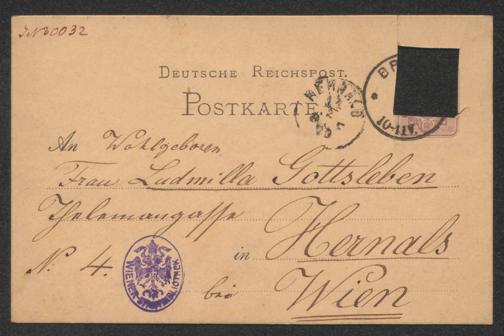 DEUTSCHE REICHSPOST.
POSTKARTE
HERNALS
10-11V.
An Wohlgeboren
Frau Ludmilla Gottsleben
Thelemangasse
Nº 4.
in Hernals
bei Wien
WIENER STADTBIBLIOTHEK